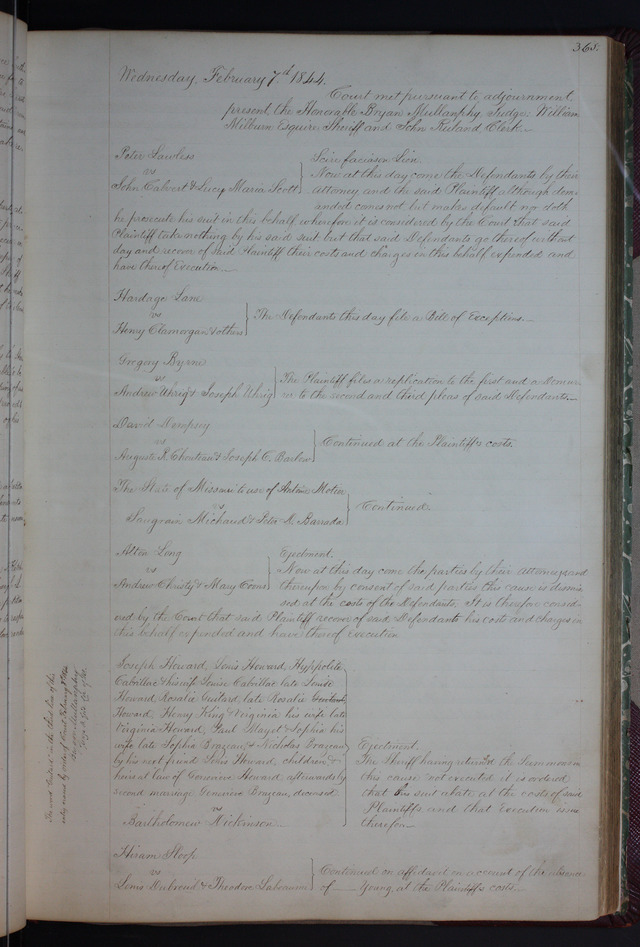 368.
Wednesday, February 7.d 1844.
Court met pursuant to adjournment,
present, the Honorable Bryan Mullanphy, Judge; William
Milburn Esquire, Sheriff and John Ruland Clerk.
Peter Lawless
vs
John Calvert & Lucy Maria Scott
Scire facias on Lien.
Now at this day come the Defendants by their
attorney and the said Plaintiff although dem-
anded comes not but makes default nor doth
he prosecute his suit in this behalf wherefore it is considered by the Court that said
Plaintiff take nothing by his said suit but that said Defendants go thereof without
day and recover of said Plaintiff their costs and charges in this behalf expended and
have thereof Execution.
Hardage Lane
vs
Henry Clamorgan & others
The Defendants this day file a Bill of Exceptions.
Gregory Byrne
vs
Andrew Uhrig & Joseph Uhrig
The Plaintiff files a replication to the first and a Demur-
er to the second and third pleas of said Defendants.
David Dempsey
vs
Auguste R. Chouteau & Joseph C. Barlow
Continued at the Plaintiff's costs.
The State of Missouri to use of Antoine Motier
vs
Saugrain Michaud & Peter K. Barrada
Continued.
Alton Long
vs
Andrew Christy & Mary Coons
Ejectment.
Now at this day come the parties by their attorneys and
thereupon by consent of said parties this cause is dismis-
sed at the costs of the Defendants. It is therefore consid-
ered by the Court that said Plaintiff recover of said Defendants his costs and charges in
this behalf expended and have thereof Execution
Joseph Howard, Louis Howard, Hyppolete
Cabrillac & his wife Louise Cabrillac late Louise
Howard Rosalie Guitard, late Rosalie
Howard, Henry King & Virginia his wife late
Virginia Howard, Paul Mayot & Sophia his
wife late Sophia Brazeau, & Nicholas Brazeau
by his next friend Louis Howard, children &
heirs at law of Genevieve Howard afterwards by
second marriage Genevieve Brazeau, deceased
vs
Bartholomew Dickinson
Ejectment.
The Sheriff having returned the Summons in
this cause "not executed" it is ordered
that this suit abate at the costs of said
Plaintiffs and that Execution issue
therefor.
The word "Guitard" in the third line of this
entry erased by order of Court February
Hiram Shoop
vs
Louis Dubreuil & Theodore Labeaume
Continued on affidavit on account of the absence
of Young, at the Plaintiff's costs.